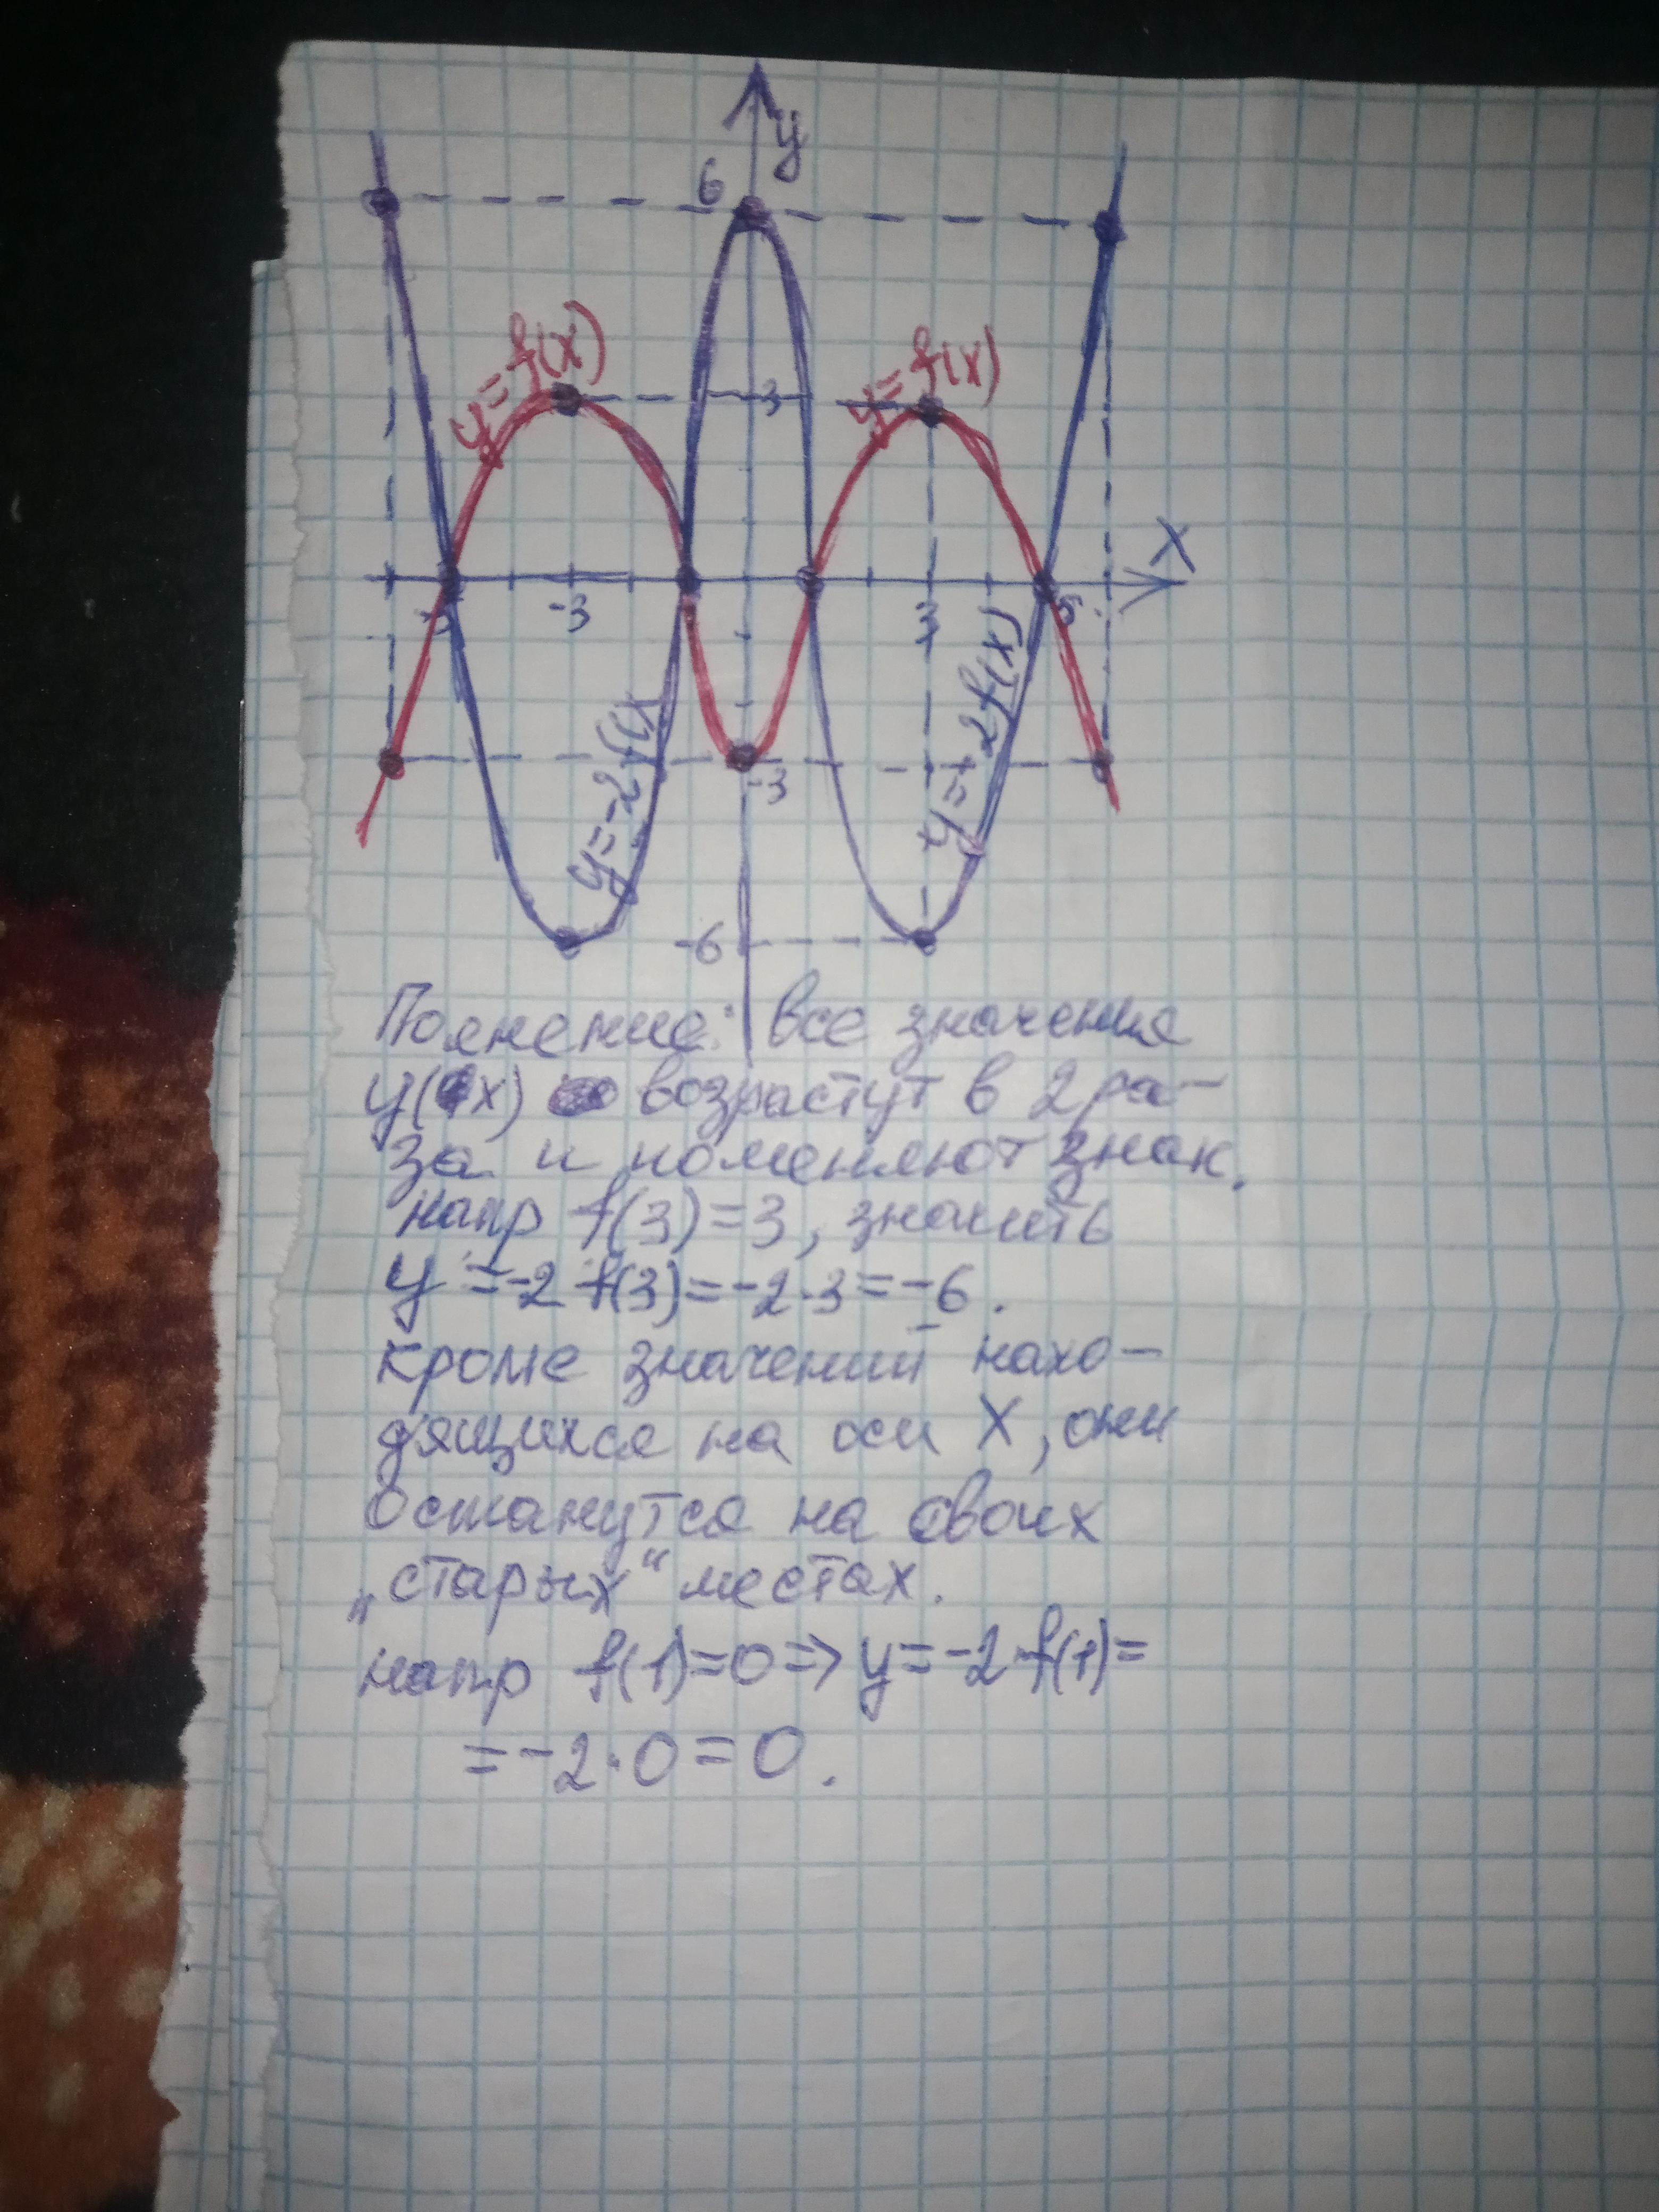 y
6
y=f(x)
y=f(x)
3
X
-5
-3
3
5
-3
y=-2f(x
y=-2f(x)
-6
Поянение: все значения
y(x) возрастут в 2 ра-
за и поменяют знак.
напр f(3)=3, значить
y=-2f(3)=-2·3=-6.
кроме значений нахо-
дящихся на оси X, они
останутся на своих
„старых“ местах.
напр f(1)=0=>y=-2f(1)=
=-2·0=0.